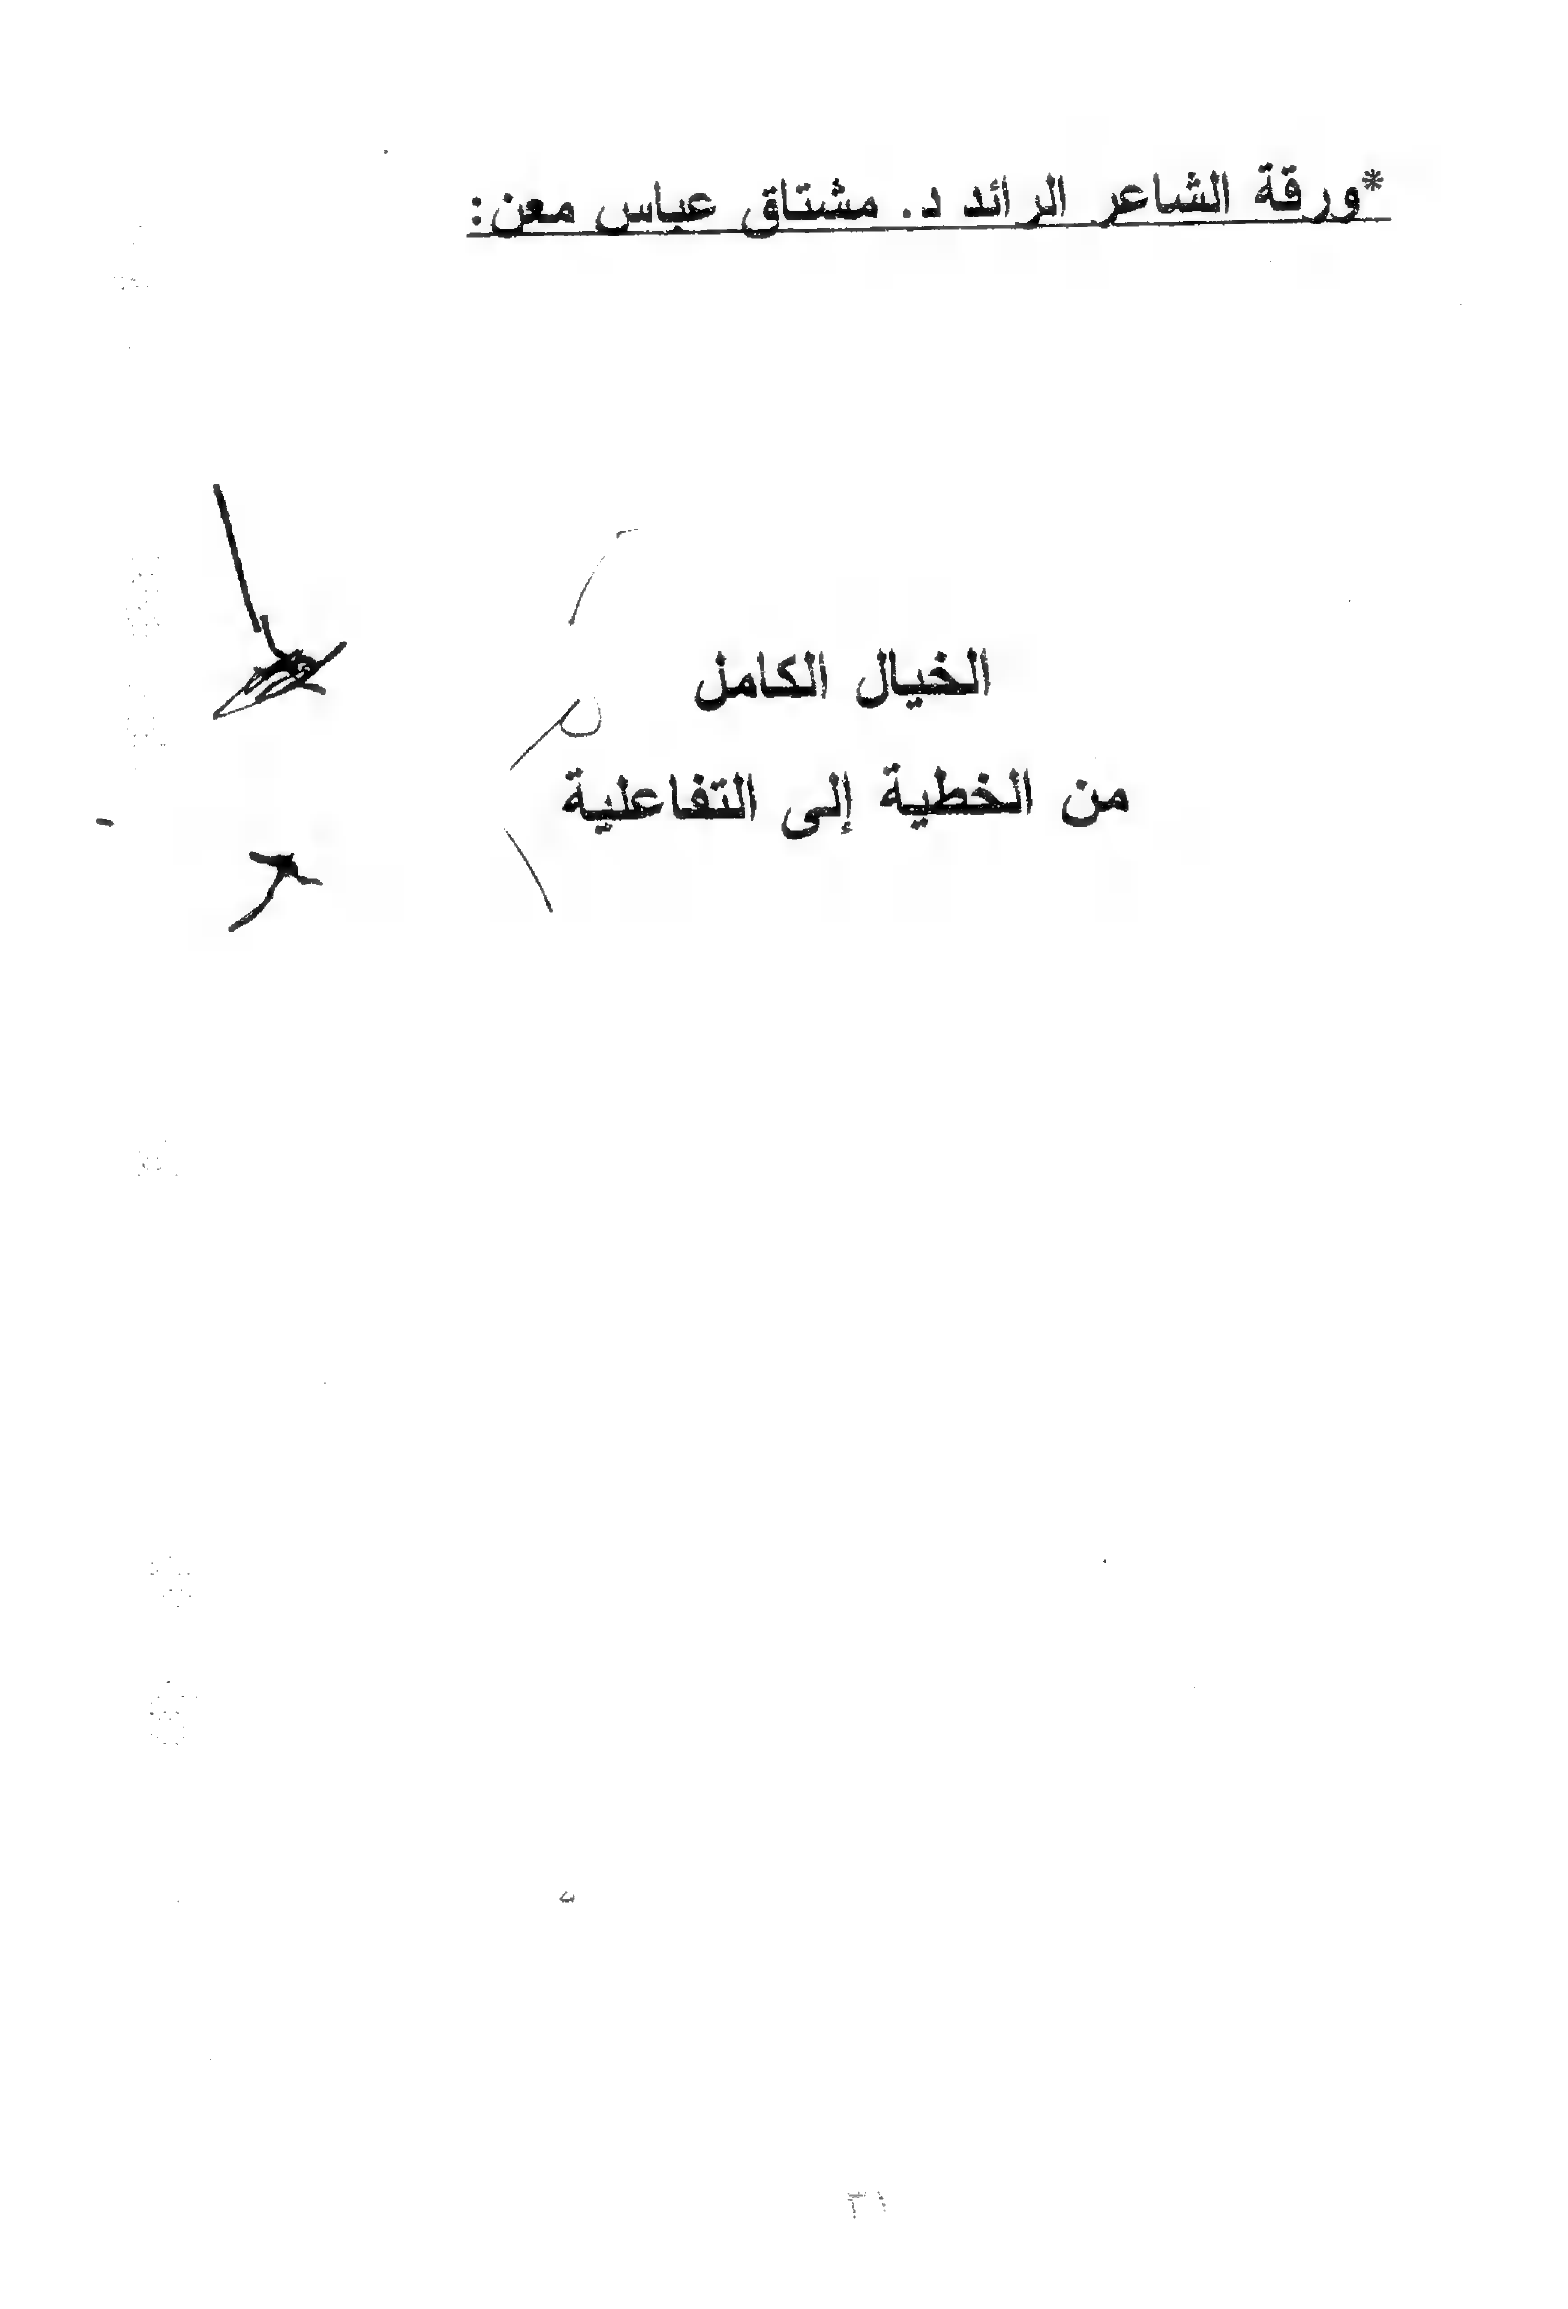 *ورقة الشاعر الرائد د. مشتاق عباس معن:
الخيال الكامل
من الخطية إلى التفاعلية